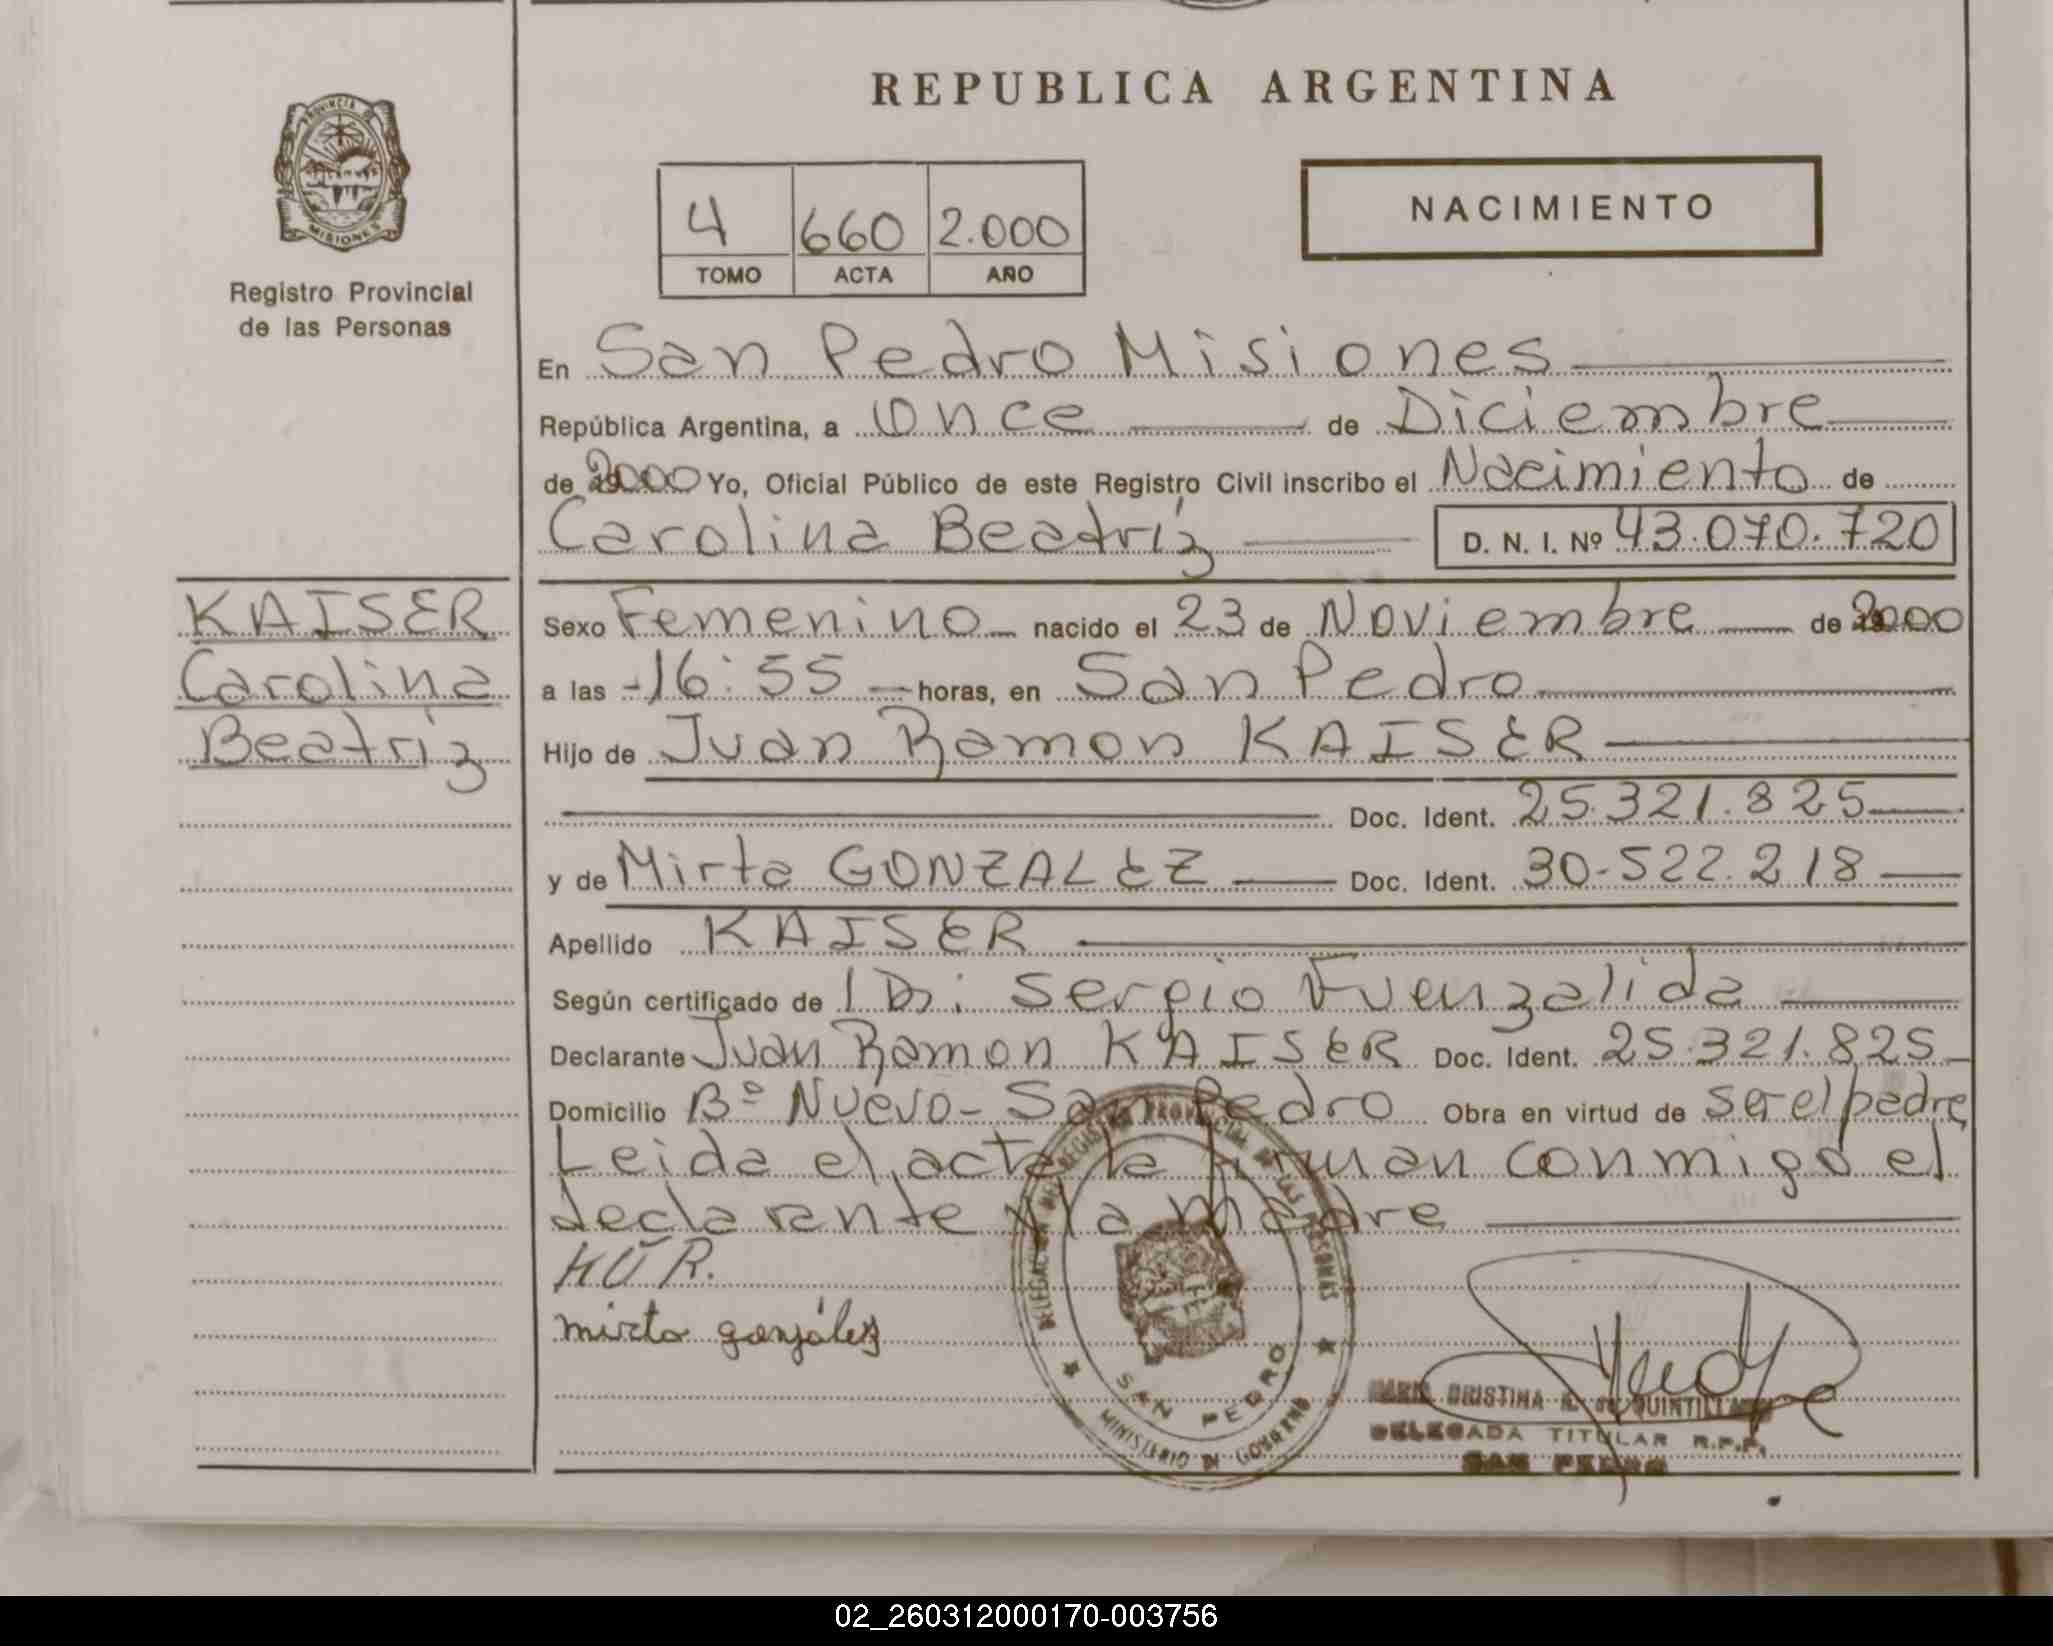 REPUBLICA ARGENTINA
PROVINCIA DE
MISIONES
Registro Provincial
de las Personas
4 660 2.000
TOMO ACTA AÑO
NACIMIENTO
En San Pedro Misiones
República Argentina, a Once de Diciembre
de 2000 Yo, Oficial Público de este Registro Civil inscribo el Nacimiento de
Carolina Beatríz D. N. I. Nº 43.070.720
KAISER
Carolina
Beatriz
Sexo Femenino nacido el 23 de Noviembre de 2000
a las -16:55 horas, en San Pedro
Hijo de Juan Ramon KAISER
Doc. Ident. 25.321.825
y de Mirta GONZALEZ Doc. Ident. 30-522.218
Apellido KAISER
Según certificado de Dr: Sergio Fuenzalida
Declarante Juan Ramon KAISER Doc. Ident. 25.321.825
Domicilio Bº Nuevo- San Pedro Obra en virtud de ser el padre
Leida el acta la firman conmigo el
declarante y la madre
mirta gonzález
DELEGACION DEL REGISTRO PROVINCIAL DE LAS PERSONAS
SAN PEDRO
MINISTERIO DE GOBIERNO
CRISTINA
DELEGADA TITULAR R.P.P.
SAN PEDRO
02_260312000170-003756